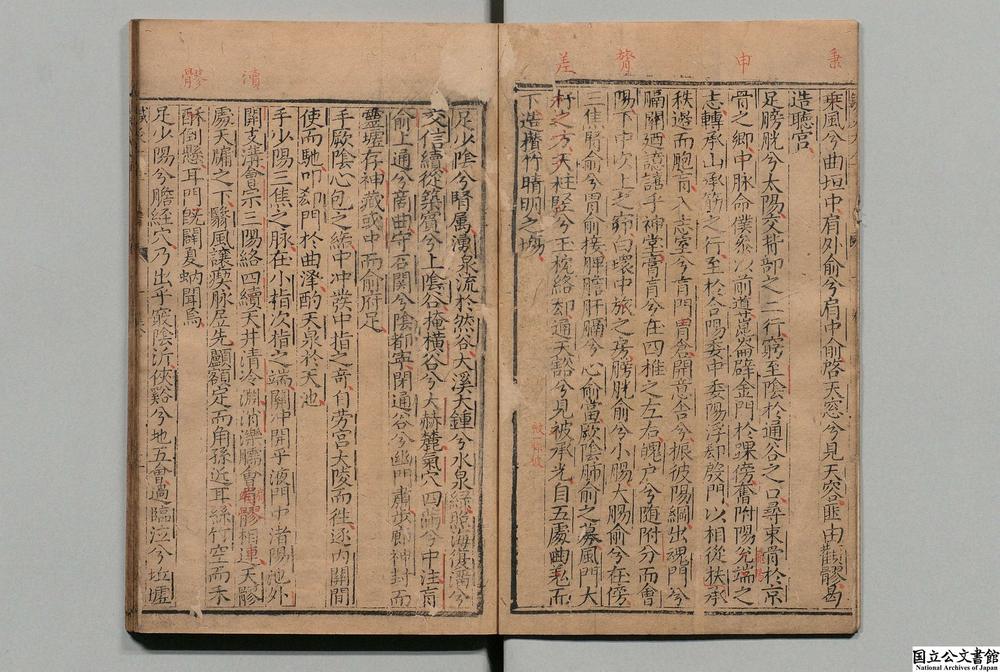 秉
申
膂
差
乘風兮曲垣中肩外俞兮肩中俞啓天窓兮見天容匪由顴髎曷
造聽宮
足膀胱兮太陽交背部之二行窮至陰於通谷之口尋束骨於京
骨之鄉申脉命僕參以前導崑崙辟金門於踝傍奮附陽允端之
志轉承山承筋之行至於合陽委中委陽浮郄殷門以相從扶承
秩邊而胞肓入志室兮肓門胃倉開意舍兮振彼陽綱出魂門兮
膈關廼譩譆乎神堂膏肓兮在四椎之左右魄戶兮隨附分而會
陽下中次上之髎白環中旅之房膀胱俞兮小腸大腸俞兮在傍
三焦腎俞兮胃俞接脾膽肝膈兮心俞當厥陰肺俞之募風門大
杼之方天柱堅兮玉枕絡却通天豁兮見彼承光自五處曲差而
下造攢竹睛明之場
瀆
髎
足少陰兮腎属湧泉流於然谷大溪大鍾兮水泉緑照海復溜兮
交信續從築賓兮上陰谷掩橫谷兮大赫麓氣穴四滿兮中注肓
俞上通兮啇曲守石關兮陰都寧閉通谷兮幽門肅步郎神封而
靈墟存神藏或中而俞府足
手厥陰心包之絡中冲發中指之竒自劳宮大陵而徃逐内關間
使而馳叩郄門於曲澤酌天泉於天池
手少陽三焦之脉在小指次指之端關冲開乎液門中渚陽池外
開支溝會宗三陽絡四續天井清冷淵消濼臑會肩髎相連天髎
處天牖之下翳風讓瘈脉居先顱顖定而角孫近耳絲竹空而禾
髎倒懸耳門旣闢夏蚋聞焉
足少陽兮膽經穴乃出乎竅陰泝俠谿兮地五會過臨泣兮坵墟
国立公文書館
National Archives of Japan